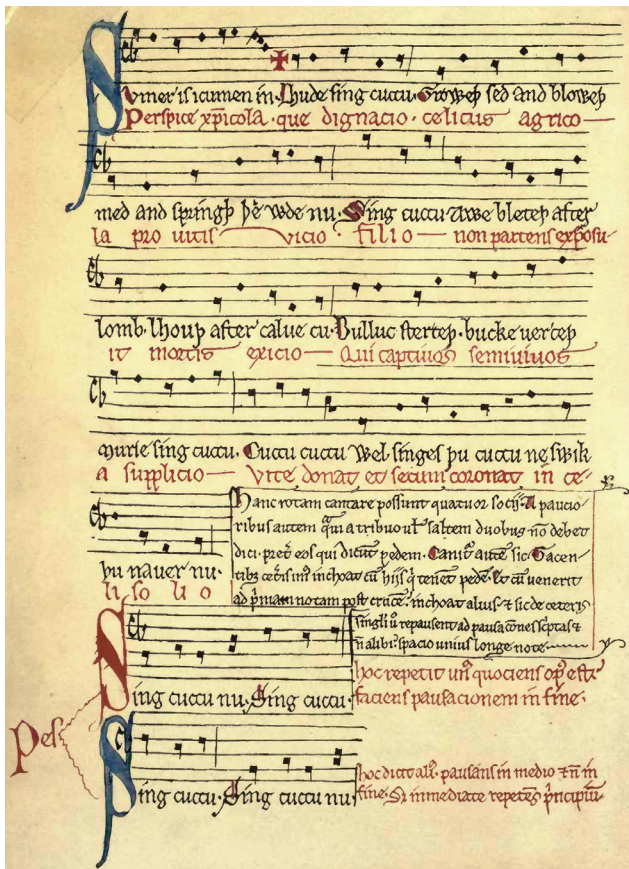 Sumer is icumen in. Lhude sing cuccu. Groweþ sed and bloweþ
Perspice xp̄icola. que dignacio. celicus agrico
med and springþ þe wde nu. Sing cuccu Awe bleteþ after
la pro uitis vicio. filio non parcens exposu
lomb. lhouþ after calue cu. Bulluc sterteþ. bucke uerteþ
it mortis exicio Qui captiuos semiuiuos
murie sing cuccu. Cuccu cuccu Wel singes þu cuccu ne swik
a supplicio Vite donat et secum coronat in ce-
þu nauer nu.
li so li o
Hanc rotam cantare possunt quatuor socij. A paucio
ribus autem quam a tribus uł saltem duobus nō debet
dici. pret̄ eos qui dicūt pedem. Canit̄ autē sic. Tacen
tibȝ cet̄is un⁹ inchoat cū hijs q̇ tenēt pedē. Et cū venerit
ad p̄mam notam post crucē. inchoat alius. ⁊ sic de ceteris
singli ū repausent ad pausacōnes sc̄ptas ⁊
n̄ alibi. spacio unius longe note
Sing cuccu nu. Sing cuccu.
hoc repetit un⁹ quociens op⁹ est.
faciens pausacionem in fine.
Pes
Sing cuccu. Sing cuccu nu
hoc dicit ali⁹. pausans in medio ⁊ n̄ in
fine. Set inmediate repetens p̄ncipiū.